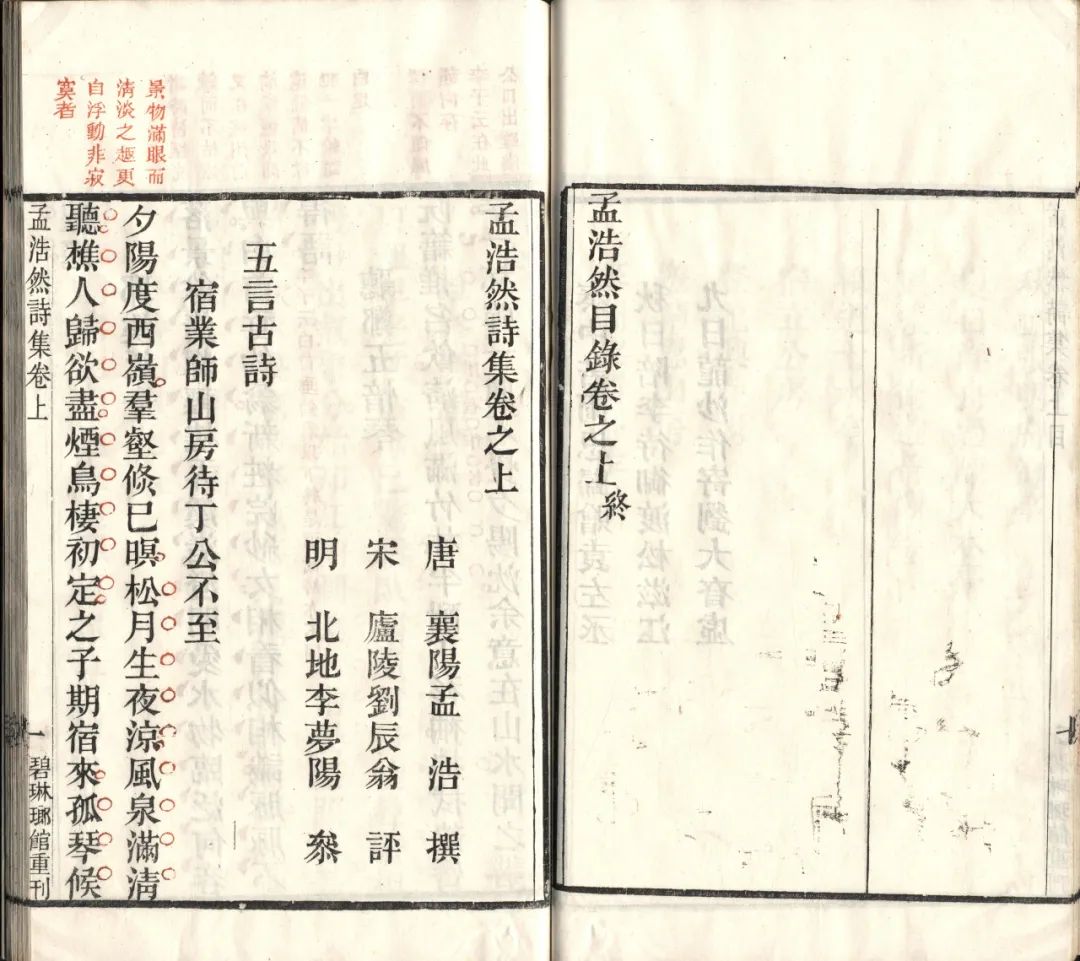 孟浩然目錄卷之上終
孟浩然詩集卷之上
唐 襄陽孟 浩 撰
宋 廬陵劉辰翁 評
明 北地李夢陽 叅
五言古詩
宿業師山房待丁公不至
夕陽度西嶺羣壑倐已暝松月生夜涼風泉滿淸
聽樵人歸欲盡煙鳥棲初定之子期宿來孤琴候
景物滿眼而
淸淡之趣更
自浮動非寂
寞者
孟浩然詩集卷上
一
碧琳瑯館重刊